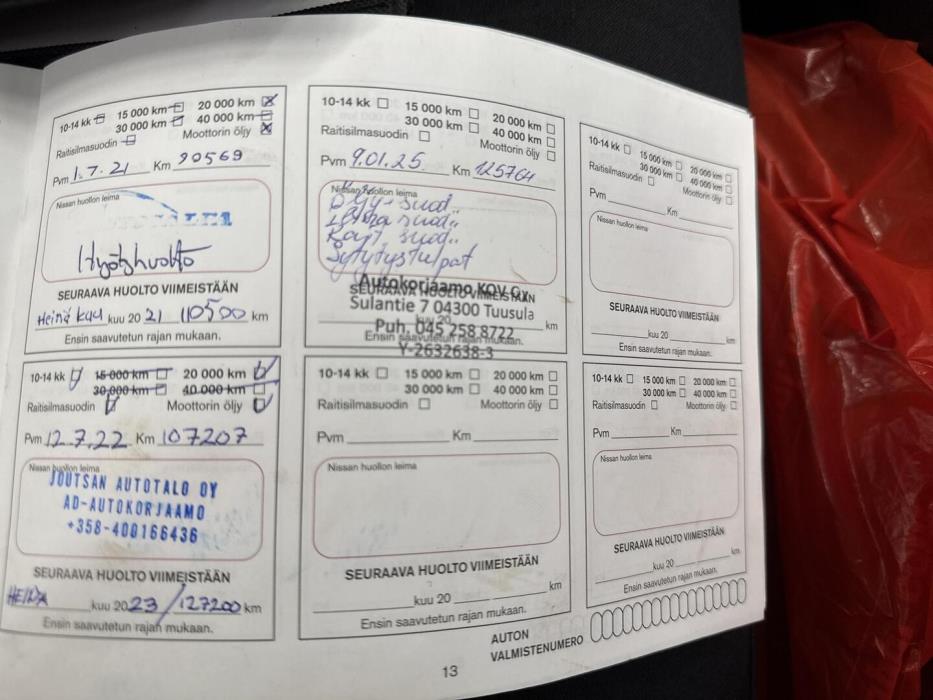 10-14 kk 15 000 km 20 000 km
30 000 km 40 000 km
Raitisilmasuodin Moottorin öljy
Pvm 1.7.21 Km 90569
Nissan huollon leima
SEURAAVA HUOLTO VIIMEISTÄÄN
Heinä kuu kuu 20 21 110500 km
Ensin saavutetun rajan mukaan.
10-14 kk 15 000 km 20 000 km
30 000 km 40 000 km
Raitisilmasuodin Moottorin öljy
Pvm 12.7.22 Km 107207
Nissan huollon leima
JOUTSAN AUTOTALO OY
AD-AUTOKORJAAMO
+358-400166436
SEURAAVA HUOLTO VIIMEISTÄÄN
HEINÄ kuu 20 23 / 127200 km
Ensin saavutetun rajan mukaan.
10-14 kk 15 000 km 20 000 km
30 000 km 40 000 km
Raitisilmasuodin Moottorin öljy
Pvm 9.01.25 Km 125764
Nissan huollon leima
Öljy-suod
suod..
suod..
Sytytystulpat
Autokorjaamo KOV Oy
SEURAAVA HUOLTO VIIMEISTÄÄN
Sulantie 7 04300 Tuusula
kuu 20 km
Puh. 045 258 8722
Ensin saavutetun rajan mukaan.
Y-2632638-3
10-14 kk 15 000 km 20 000 km
30 000 km 40 000 km
Raitisilmasuodin Moottorin öljy
Pvm Km
Nissan huollon leima
SEURAAVA HUOLTO VIIMEISTÄÄN
kuu 20 km
Ensin saavutetun rajan mukaan.
10-14 kk 15 000 km 20 000 km
30 000 km 40 000 km
Raitisilmasuodin Moottorin öljy
Pvm Km
Nissan huollon leima
SEURAAVA HUOLTO VIIMEISTÄÄN
kuu 20 km
Ensin saavutetun rajan mukaan.
10-14 kk 15 000 km 20 000 km
30 000 km 40 000 km
Raitisilmasuodin Moottorin öljy
Pvm Km
Nissan huollon leima
SEURAAVA HUOLTO VIIMEISTÄÄN
kuu 20 km
Ensin saavutetun rajan mukaan.
AUTON
VALMISTENUMERO
13